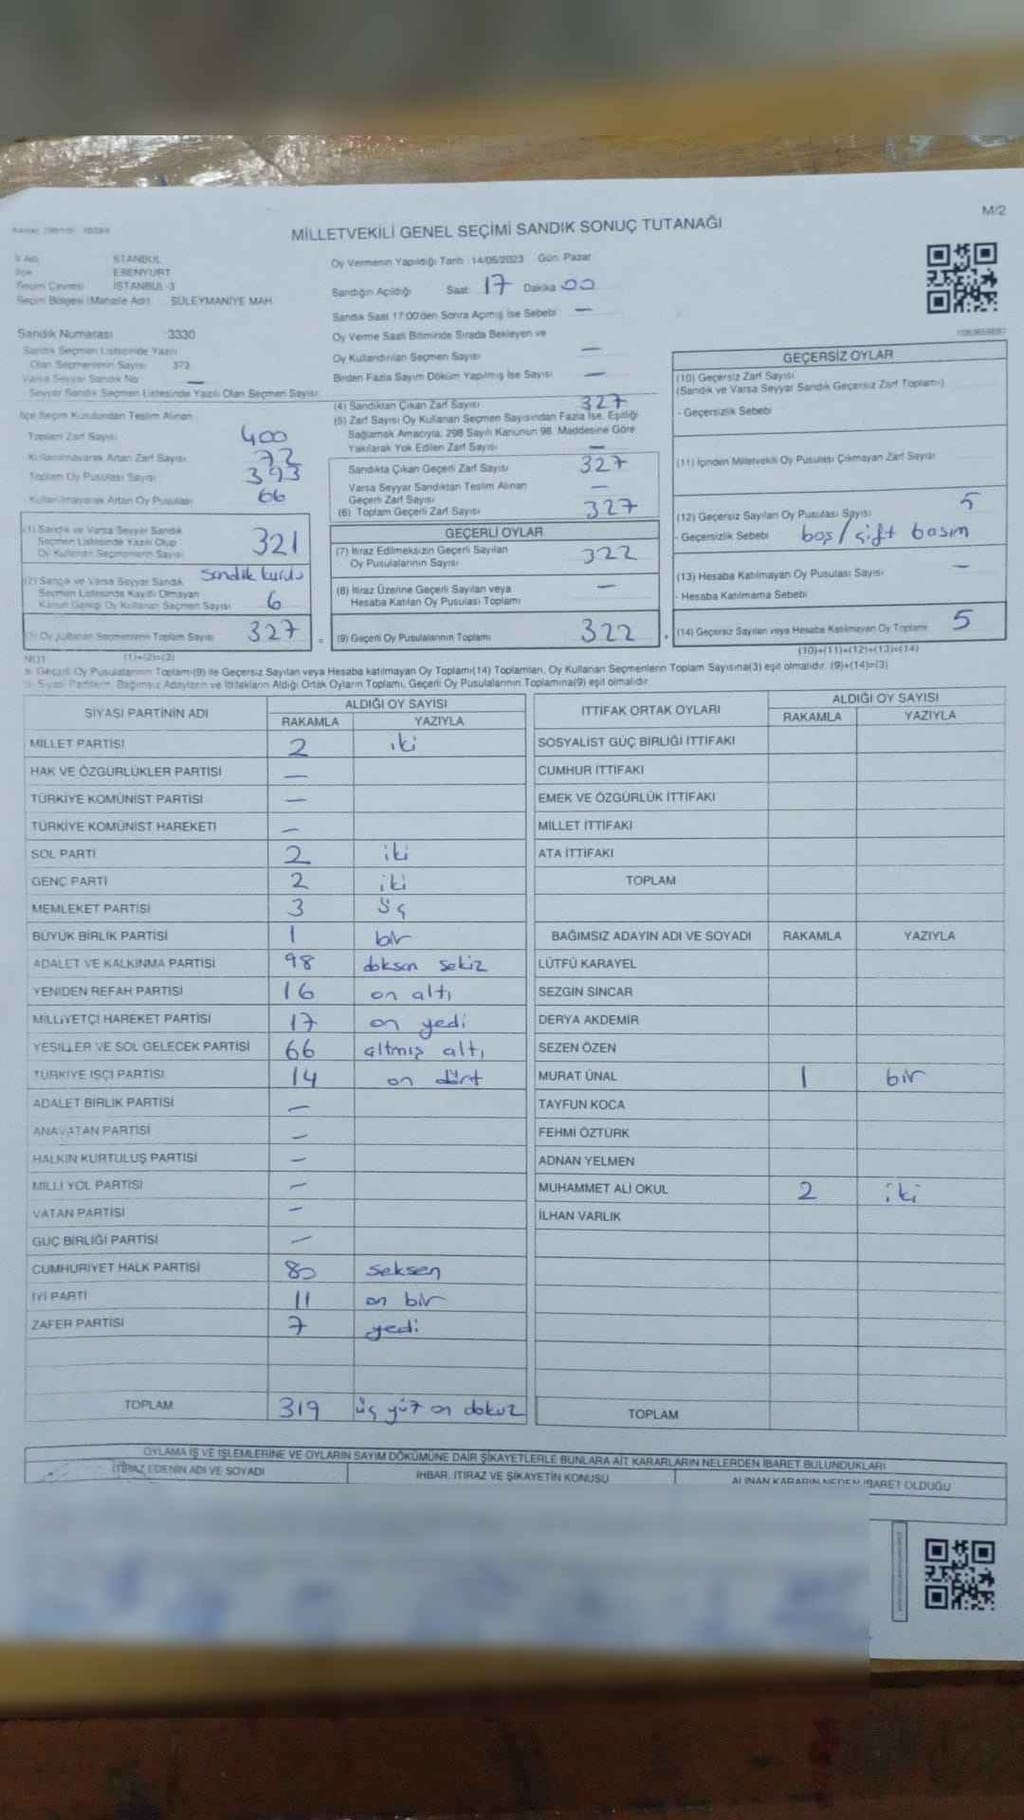 M/2
MİLLETVEKİLİ GENEL SEÇİMİ SANDIK SONUÇ TUTANAĞI
İSTANBUL
ESENYURT
Seçim Çevresi İSTANBUL-3
Seçim Bölgesi (Mahalle Adı) SÜLEYMANİYE MAH.
Sandık Numarası 3330
Sandık Seçmen Listesinde Yazılı
Olan Seçmenlerin Sayısı 373
Varsa Seyyar Sandık No —
Seyyar Sandık Seçmen Listesinde Yazılı Olan Seçmen Sayısı
Oy Vermenin Yapıldığı Tarih 14/05/2023 Gün: Pazar
Sandığın Açıldığı Saat: 17 Dakika 00
Sandık Saat 17:00'den Sonra Açılmış İse Sebebi —
Oy Verme Saati Bitiminde Sırada Bekleyen ve
Oy Kullandırılan Seçmen Sayısı —
Birden Fazla Sayım Döküm Yapılmış İse Sayısı —
İlçe Seçim Kurulundan Teslim Alınan
Toplam Zarf Sayısı 400
Kullanılmayarak Artan Zarf Sayısı 72
Toplam Oy Pusulası Sayısı 393
Kullanılmayarak Artan Oy Pusulası 66
(1) Sandık ve Varsa Seyyar Sandık
Seçmen Listesinde Yazılı Olup
Oy Kullanan Seçmenlerin Sayısı 321
(2) Sandık ve Varsa Seyyar Sandık Sandık kurulu
Seçmen Listesinde Kayıtlı Olmayan
Kanun Gereği Oy Kullanan Seçmen Sayısı 6
(3) Oy Kullanan Seçmenlerin Toplam Sayısı 327
(1)+(2)=(3)
(4) Sandıktan Çıkan Zarf Sayısı 327
(5) Zarf Sayısı Oy Kullanan Seçmen Sayısından Fazla İse, Eşitliği
Sağlamak Amacıyla, 298 Sayılı Kanunun 98. Maddesine Göre
Yakılarak Yok Edilen Zarf Sayısı —
Sandıkta Çıkan Geçerli Zarf Sayısı 327
Varsa Seyyar Sandıktan Teslim Alınan
Geçerli Zarf Sayısı —
(6) Toplam Geçerli Zarf Sayısı 327
GEÇERLİ OYLAR
(7) İtiraz Edilmeksizin Geçerli Sayılan
Oy Pusulalarının Sayısı 322
(8) İtiraz Üzerine Geçerli Sayılan veya
Hesaba Katılan Oy Pusulası Toplamı —
(9) Geçerli Oy Pusulalarının Toplamı 322
GEÇERSİZ OYLAR
(10) Geçersiz Zarf Sayısı
(Sandık ve Varsa Seyyar Sandık Geçersiz Zarf Toplamı)
- Geçersizlik Sebebi
(11) İçinden Milletvekili Oy Pusulası Çıkmayan Zarf Sayısı
(12) Geçersiz Sayılan Oy Pusulası Sayısı 5
- Geçersizlik Sebebi boş / çift basım
(13) Hesaba Katılmayan Oy Pusulası Sayısı —
- Hesaba Katılmama Sebebi
(14) Geçersiz Sayılan veya Hesaba Katılmayan Oy Toplamı 5
(10)+(11)+(12)+(13)=(14)
NOT
Geçerli Oy Pusulalarının Toplamı(9) ile Geçersiz Sayılan veya Hesaba katılmayan Oy Toplamı(14) Toplamları, Oy Kullanan Seçmenlerin Toplam Sayısına(3) eşit olmalıdır. (9)+(14)=(3)
Siyasi Partilerin, Bağımsız Adayların ve İttifakların Aldığı Ortak Oyların Toplamı, Geçerli Oy Pusulalarının Toplamına(9) eşit olmalıdır.
SİYASİ PARTİNİN ADI ALDIĞI OY SAYISI
RAKAMLA YAZIYLA
MİLLET PARTİSİ 2 iki
HAK VE ÖZGÜRLÜKLER PARTİSİ —
TÜRKİYE KOMÜNİST PARTİSİ —
TÜRKİYE KOMÜNİST HAREKETİ —
SOL PARTİ 2 iki
GENÇ PARTİ 2 iki
MEMLEKET PARTİSİ 3 üç
BÜYÜK BİRLİK PARTİSİ 1 bir
ADALET VE KALKINMA PARTİSİ 98 doksan sekiz
YENİDEN REFAH PARTİSİ 16 on altı
MİLLİYETÇİ HAREKET PARTİSİ 17 on yedi
YEŞİLLER VE SOL GELECEK PARTİSİ 66 altmış altı
TÜRKİYE İŞÇİ PARTİSİ 14 on dört
ADALET BİRLİK PARTİSİ —
ANAVATAN PARTİSİ —
HALKIN KURTULUŞ PARTİSİ —
MİLLİ YOL PARTİSİ —
VATAN PARTİSİ —
GÜÇ BİRLİĞİ PARTİSİ —
CUMHURİYET HALK PARTİSİ 80 seksen
İYİ PARTİ 11 on bir
ZAFER PARTİSİ 7 yedi
TOPLAM 319 üç yüz on dokuz
İTTİFAK ORTAK OYLARI ALDIĞI OY SAYISI
RAKAMLA YAZIYLA
SOSYALİST GÜÇ BİRLİĞİ İTTİFAKI
CUMHUR İTTİFAKI
EMEK VE ÖZGÜRLÜK İTTİFAKI
MİLLET İTTİFAKI
ATA İTTİFAKI
TOPLAM
BAĞIMSIZ ADAYIN ADI VE SOYADI RAKAMLA YAZIYLA
LÜTFÜ KARAYEL
SEZGİN SİNCAR
DERYA AKDEMİR
SEZEN ÖZEN
MURAT ÜNAL 1 bir
TAYFUN KOCA
FEHMİ ÖZTÜRK
ADNAN YELMEN
MUHAMMET ALİ OKUL 2 iki
İLHAN VARLIK
TOPLAM
OYLAMA İŞ VE İŞLEMLERİNE VE OYLARIN SAYIM DÖKÜMÜNE DAİR ŞİKAYETLERLE BUNLARA AİT KARARLARIN NELERDEN İBARET BULUNDUKLARI
İTİRAZ EDENİN ADI VE SOYADI İHBAR, İTİRAZ VE ŞİKAYETİN KONUSU ALINAN KARARIN NEDEN İBARET OLDUĞU